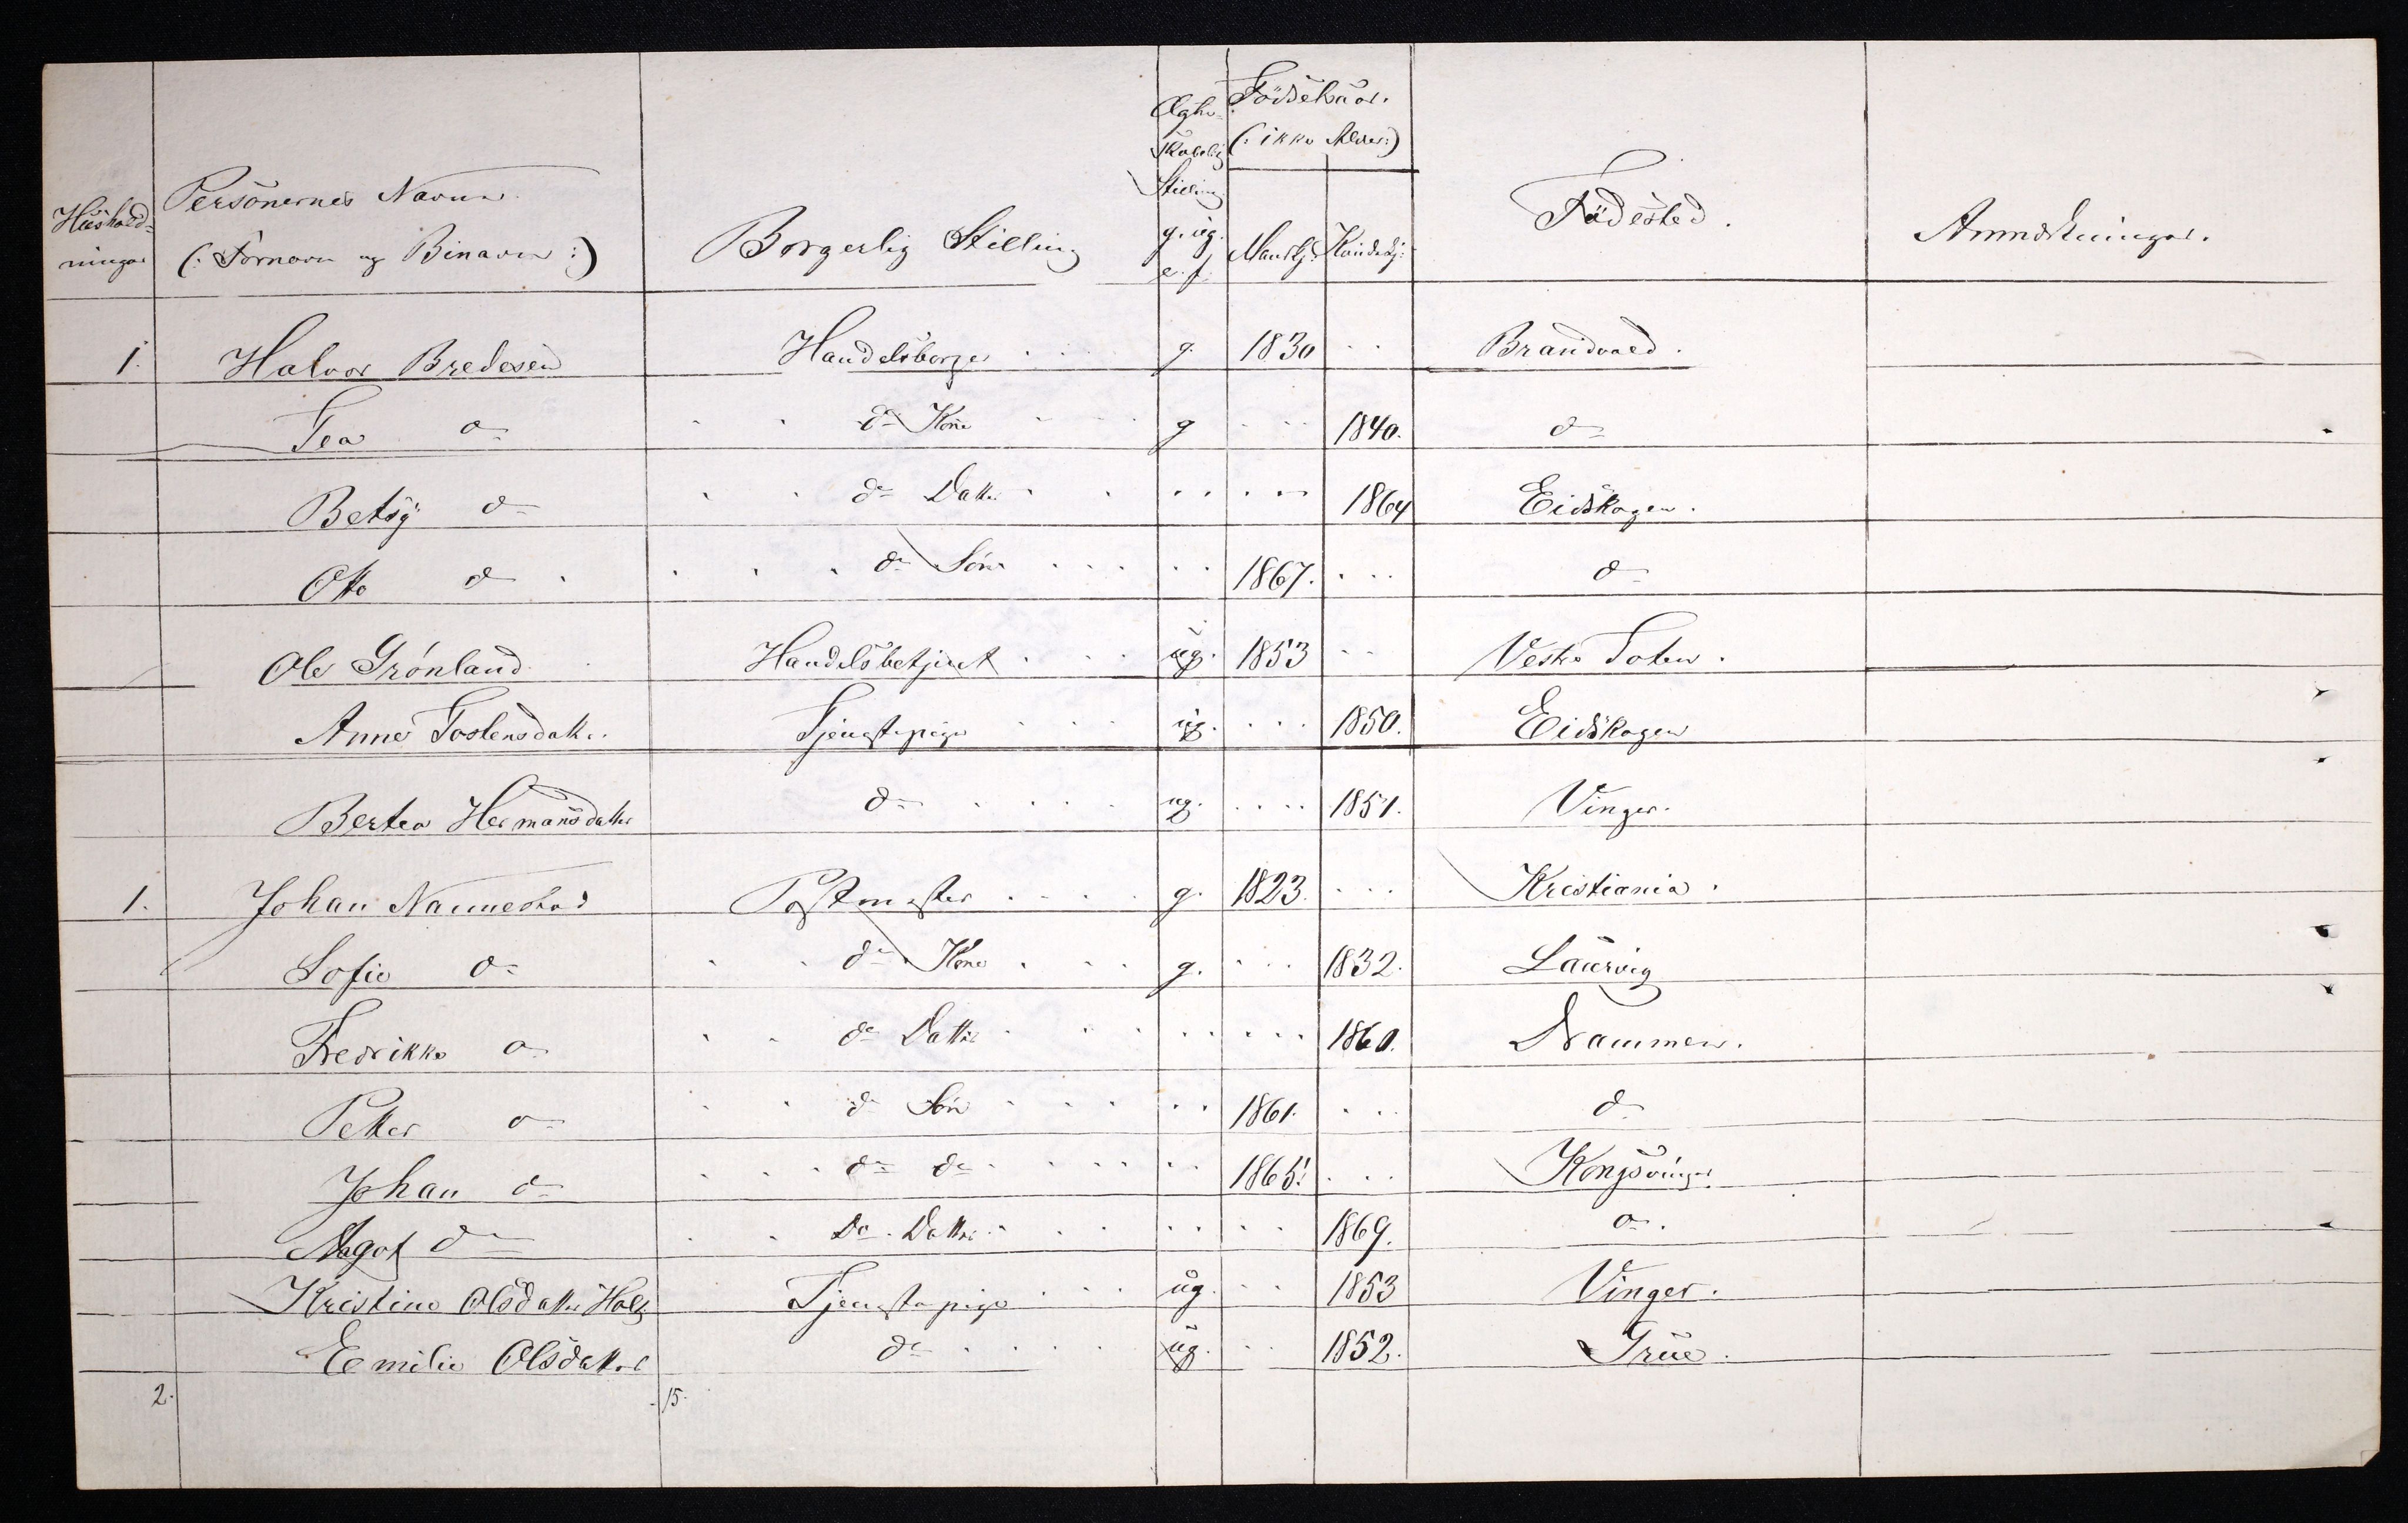 Ægte-
skabelig
Stilling
g. ug.
e. f.
Födselsaar.
(: ikke Alder:)
Mandkj. Kvindekj.
Hushold-
ninger
Personernes Navne
(: Fornavn og Binavn :)
Borgerlig Stilling
Födested.
Anmærkninger.
1. Halvor Bredesen Handelsborger g. 1830 Brandvold.
Tea do do Kone g 1840. do
Betsy do do Datter 1864 Eidskogen.
Otto do do Sön 1867. do
Ole Grónland Handelsbetjent ug. 1853 Vestre Toten.
Anne Tostensdatter Tjenestepige ug. 1850. Eidskogen
Bertea Hermansdatter do ug. 1851. Vinger.
1. Johan Nannestad Postmester g. 1823. Kristiania.
Sofie do do Kone g. 1832. Laurvig
Fredrikke do do Datter 1860. Drammen.
Petter do do Sön 1861. do
Johan do do do 1865. Kongsvinger
Magot do Do Datter 1869. do.
Kristine Olsdatter Tjenestepige ug. 1853 Vinger.
Emilie Olsdatter do ug. 1852. Grue.
2. 15.